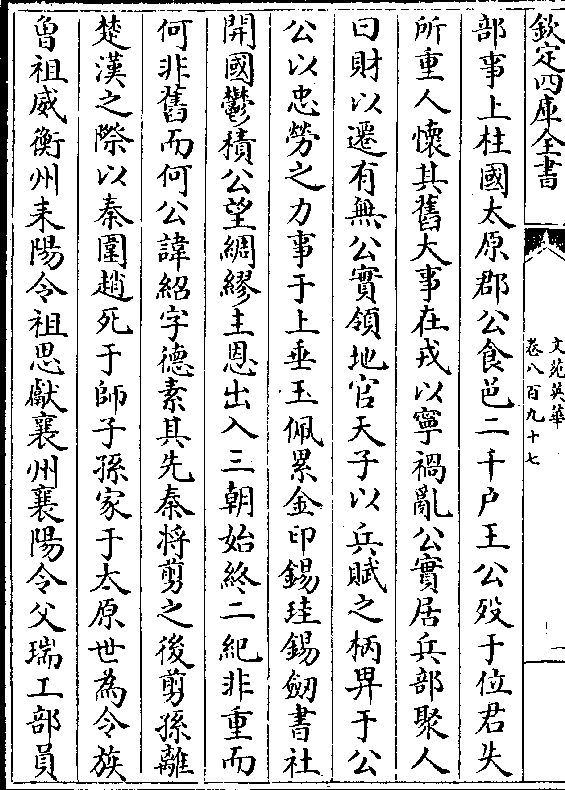 欽定四庫全書
文苑英華
卷八百九十七
一
部事上柱國太原郡公食邑二千户王公歿于位君失
所重人懷其舊大事在戎以寧禍亂公實居兵部聚人
曰財以遷有無公實領地官天子以兵賦之柄畀于公
公以忠勞之力事于上垂玉佩累金印錫珪錫劒書社
開國鬱積公望綢繆主恩出入三朝始終二紀非重而
何非舊而何公諱紹字德素其先秦将剪之後剪孫離
楚漢之際以秦圍趙死于師子孫家于太原世為令族
曾祖威衡州耒陽令祖思獻襄州襄陽令父瑞工部員